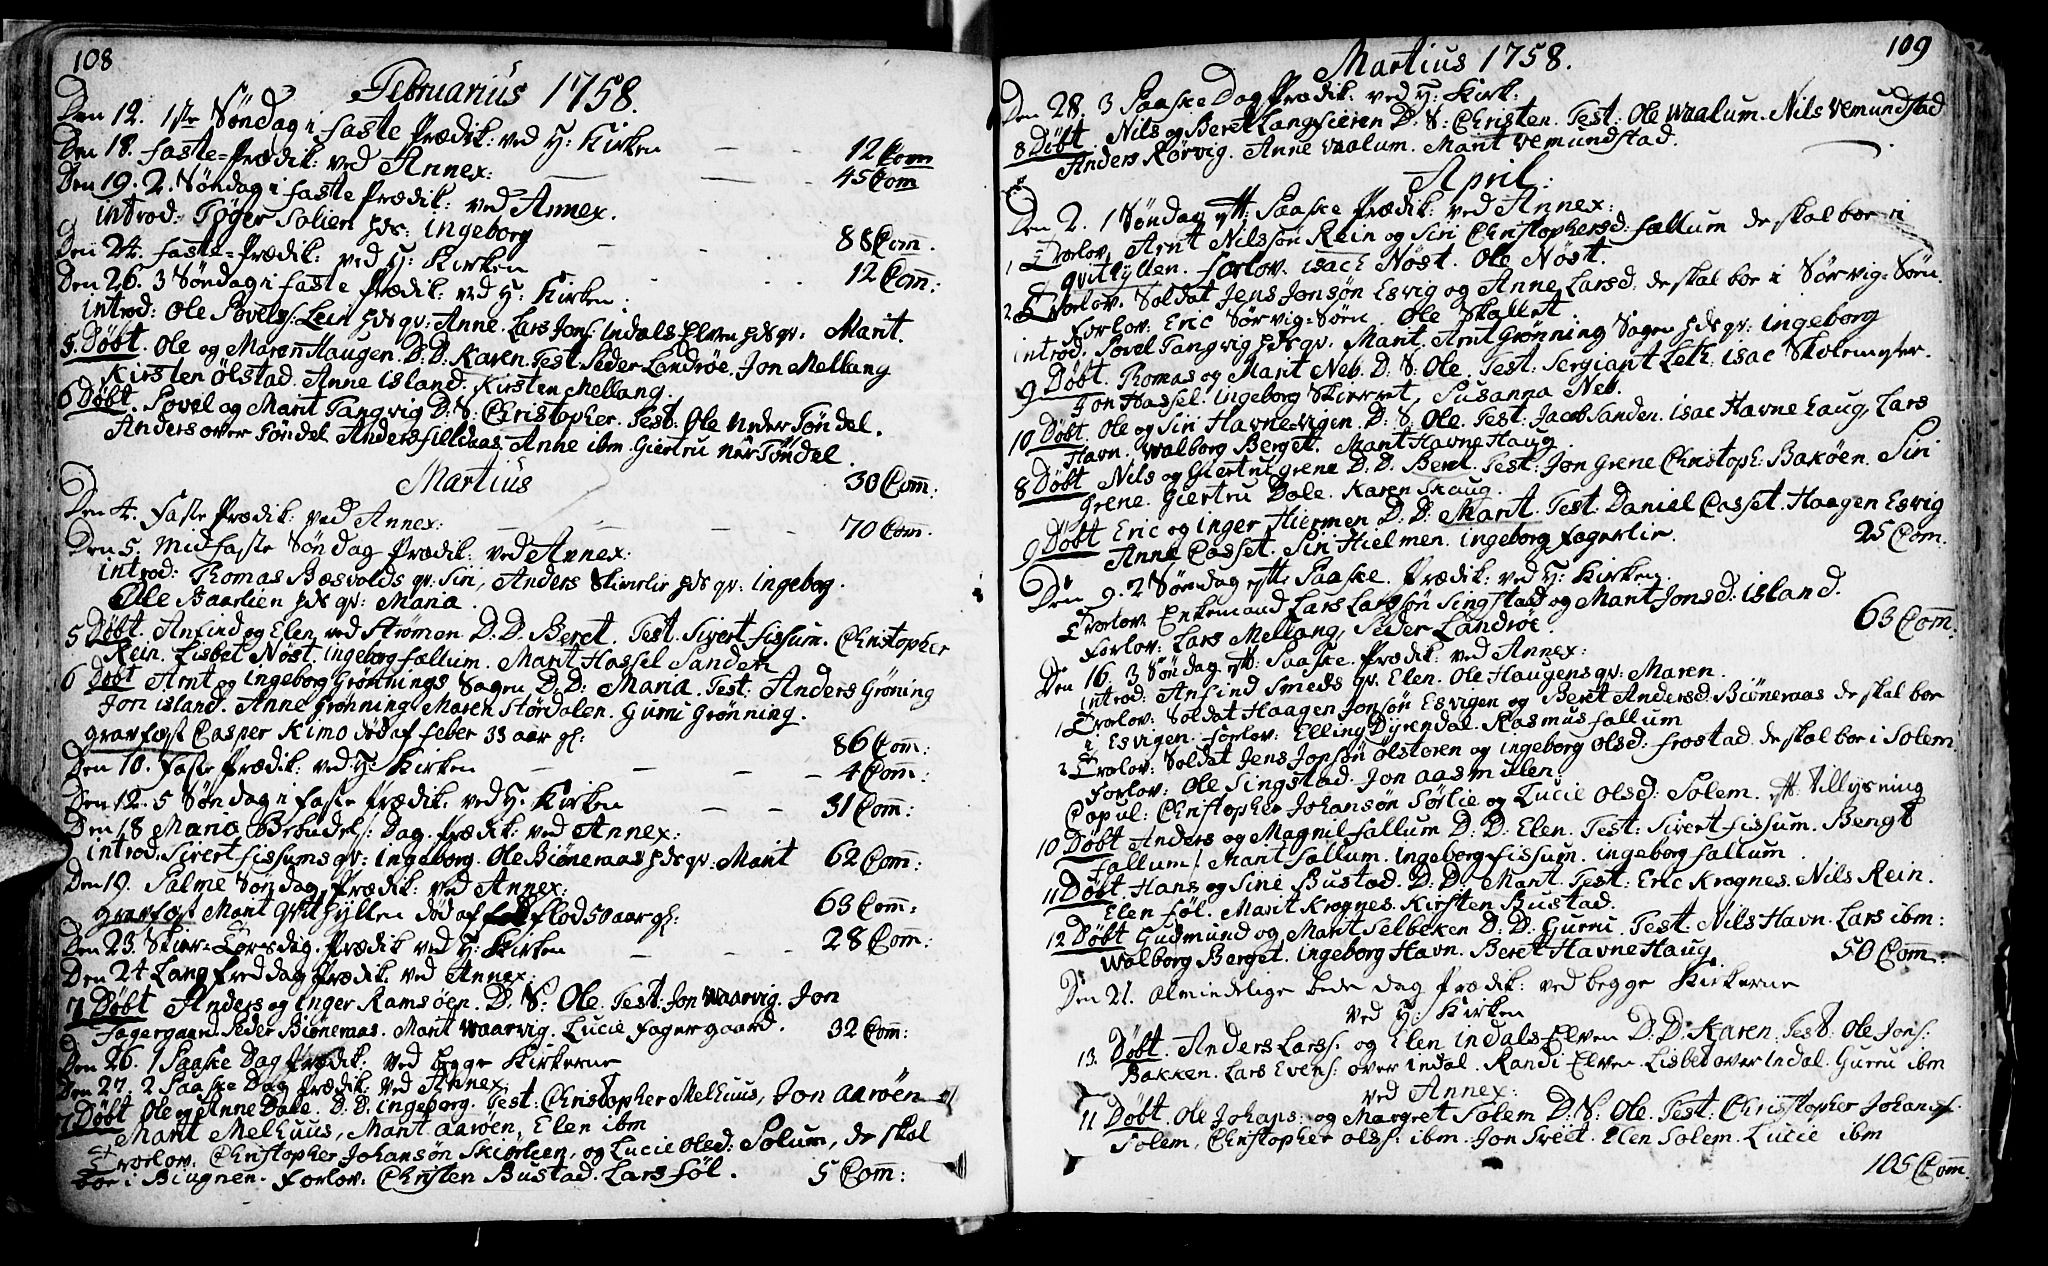 108
Februarius 1758.
Den 12. 1ste Søndag i faste Prædik: ved H: Kirken — — 12 Com
Den 18. faste=Prædik: ved Annex: — — — 45 Com
Den 19. 2. Søndag i faste Prædik: ved Annex.
introd: Tøger Solien hds: ingeborg — — 88 Com̄.
Den 24. faste=Prædik: ved H: Kirken 12 Com̄:
Den 26. 3 Søndag i faste Prædik: ved H: Kirken:
introd: Ole Povels: Lein hds qv: Anne. Lars Jons: indals Elven hds qv: Marit.
5. Døbt. Ole og Maren Haugen. D: D: Karen. Test. Peder Landrøe. Jon Mellang
Kirsten Ølstad. Anne island. Kirsten Mellang.
6 Døbt. Povel og Marit Tangvig D: S: Christopher. Test: Ole Neder Tøndel.
Anders over Tøndel Anders filldaas. Anne ibm. Giertru nær Tøndel.
Martius 30 Com̄:
Den 4. faste Prædik: ved Annex: — — — 70 Com̄.
Den 5. Midfaste Søndag Prædik: ved Annex:
introd: Thomas Bæsvolds qv: Siri, Anders hds qv: ingeborg.
Ole Baarlien hds qv: Maria.
5 Døbt. Anfind og Elen ved Strømen. D. D: Beret. Test. Sivert fissum. Christopher
Rein. Lisbet Nøst, ingeborg fallum. Marit Hassel Sanden
6 Døbt Arnt og ingeborg Grønnings Sagen D: D: Maria. Test: Anders Grøning
Jon island. Anne Grønning Maren Størdalen. Gurru Grønning.
gravfæst Casper Kimo død af feber 33 aar gl: 86 Com̄:
Den 10. faste Prædik: ved H: Kirken — — — 4 Com̄:
Den 12. 5 Søndag i faste Prædik: ved H: Kirken — — 31 Com̄:
Den 18 Mariæ Dag. Prædik: ved Annex:
introd: Sivert fissums qv: ingeborg. Ole Biøneraas hds qv: Marit 62 Com̄:
Den 19. Palme Søndag Prædik: ved Annex:
gravfæst Marit Qvithyllen død af flod 50 aar gl: 63 Com̄:
Den 23. Skier=Torsdag. Prædik ved H: Kirken — — — 28 Com̄:
Den 24 Langfreddag Prædik: ved Annex:
7 Døbt Anders og inger Ramsøen. D. S: Ole. Test: Jon Waarvig. Jon
Fagergaard. Peder Biøneraas. Marit Waarvig. Lucie Fagergaard. 32 Com̄:
Den 26. 1 Paaske Dag Prædik: ved begge Kirkerne
Den 27. 2 Paaske Dag Prædik: ved Annex
7 Døbt Ole og Anne Dale. D. D. ingeborg. Test. Christopher Melhuus, Jon Aarøen
Marit Melhuus, Marit Aarøen, Elen ibm
Trolov: Christopher Johansøn Skiørlien, og Lucie Olsd: Solum, de skal
boe i Biugnen. Forlov: Christen Bustad. Lars Føl. 5 Com̄:
109
Martius 1758.
Den 28. 3 Paaske Dag Prædik: ved H: Kirk:
8 Døbt. Nils og Beret Langsieren D: S: Christen. Test: Ole Waalum. Nils Vemundstad
Anders Rørvig. Anne Waalum. Marit Vemundstad.
April:
Den 2. 1 Søndag ept: Paaske Prædik: ved Annex:
1 Trolov. Arnt Nilssøn Rein og Siri Christophersd: fallum de skal boe i
Qvithylten. forlov. isach Nøst. Ole Nøst.
2 Trolov. Soldat Jens Jonsøn Esvig og Anne Larsd: de skal boe i Sørvig=Sørn.
Forlov: Eric Sørvig=Sørn. Ole Skallet.
introd: Povel Tangvig hds qv: Marit. Arnt Grønning Sagen hds qv: ingeborg
9 Døbt. Thomas og Marit Neb. D. S. Ole. Test: Sergiant Leth. isac Skolemester.
Jon Hassel. ingeborg Skierret, Susanna Neb.
10 Døbt. Ole og Siri Havne=vigen D: S: Ole. Test: Jacob Sanden. isac Havnehaug, Lars
Havn. Walborg Berget. Marit Havne Haug.
8 Døbt Nils og Giertru Grene D: D: Beret. Test: Jon Grene Christoph: Bakøen. Siri
Grene. Giertru Dale. Karen Skaug.
9 Døbt Eric og inger Hiermen D. D: Marit. Test: Daniel Casset. Haagen Esvig
Anne Casset. Siri Hielmen. ingeborg fagerlie. 25 Com.
Den 9. 2 Søndag ept Paaske. Prædik: ved H: Kirken.
Trolov. Enkemand Lars Larssøn Singstad og Marit Jonsd: island.
Forlov: Lars Mellang, Peder Landrøe. 63 Com̄.
Den 16. 3 Søndag ept: Paaske. Prædik: ved Annex:
introd: Anfind Smeds qv. Elen. Ole Haugens qv: Maren.
1 Trolov: Soldat Haagen Jonsøn Esvigen og Beret Andersd: Biøneraas de skal boe
i Esvigen. Forlov: Elling Dyrndal. Rasmus fallum
2 Trolov: Soldat Jens Jonsøn Ølstoren og ingeborg Olsd: frostad. de skal boe i Solem
Forlov: Ole Singstad. Jon Aasmulen.
Copul: Christopher Johansøn Sørlie og Lucie Olsd: Solem. ept: Tillysning
10 Døbt Anders og Magnil fallum D: D: Elen. Test: Sivert fissum. Bengt
Fallum. Marit fallum. ingeborg fissum. ingeborg fallum.
11 Døbt Hans og Sine Bustad. D. D: Marit. Test: Eric Krognes. Nils Rein.
Elen føl. Marit Krognes. Kirsten Bustad.
12 Døbt Gudmund og Marit Selbeken D: D: Gurru. Test: Nils Havn. Lars ibm:
Walborg Berget. ingeborg Havn. Beret Havne Haug. 50 Com̄:
Den 21. almindelige bede dag Prædik: ved begge Kirkerne
ved H: Kirken
13. Døbt. Anders Larss: og Elen indals Elven D: D: Karen. Test. Ole Jons:
Bakken. Lars Evens: over indal. Randi Elven. Lisbet over indal. Gurru ibm
ved Annex:
11 Døbt. Ole Johans: og Margret Solem D. S: Ole. Test: Christopher Johans:
Solem, Christopher Olss: ibm. Jon Sveet. Elen Solem. Lucie ibm
105 Com̄.